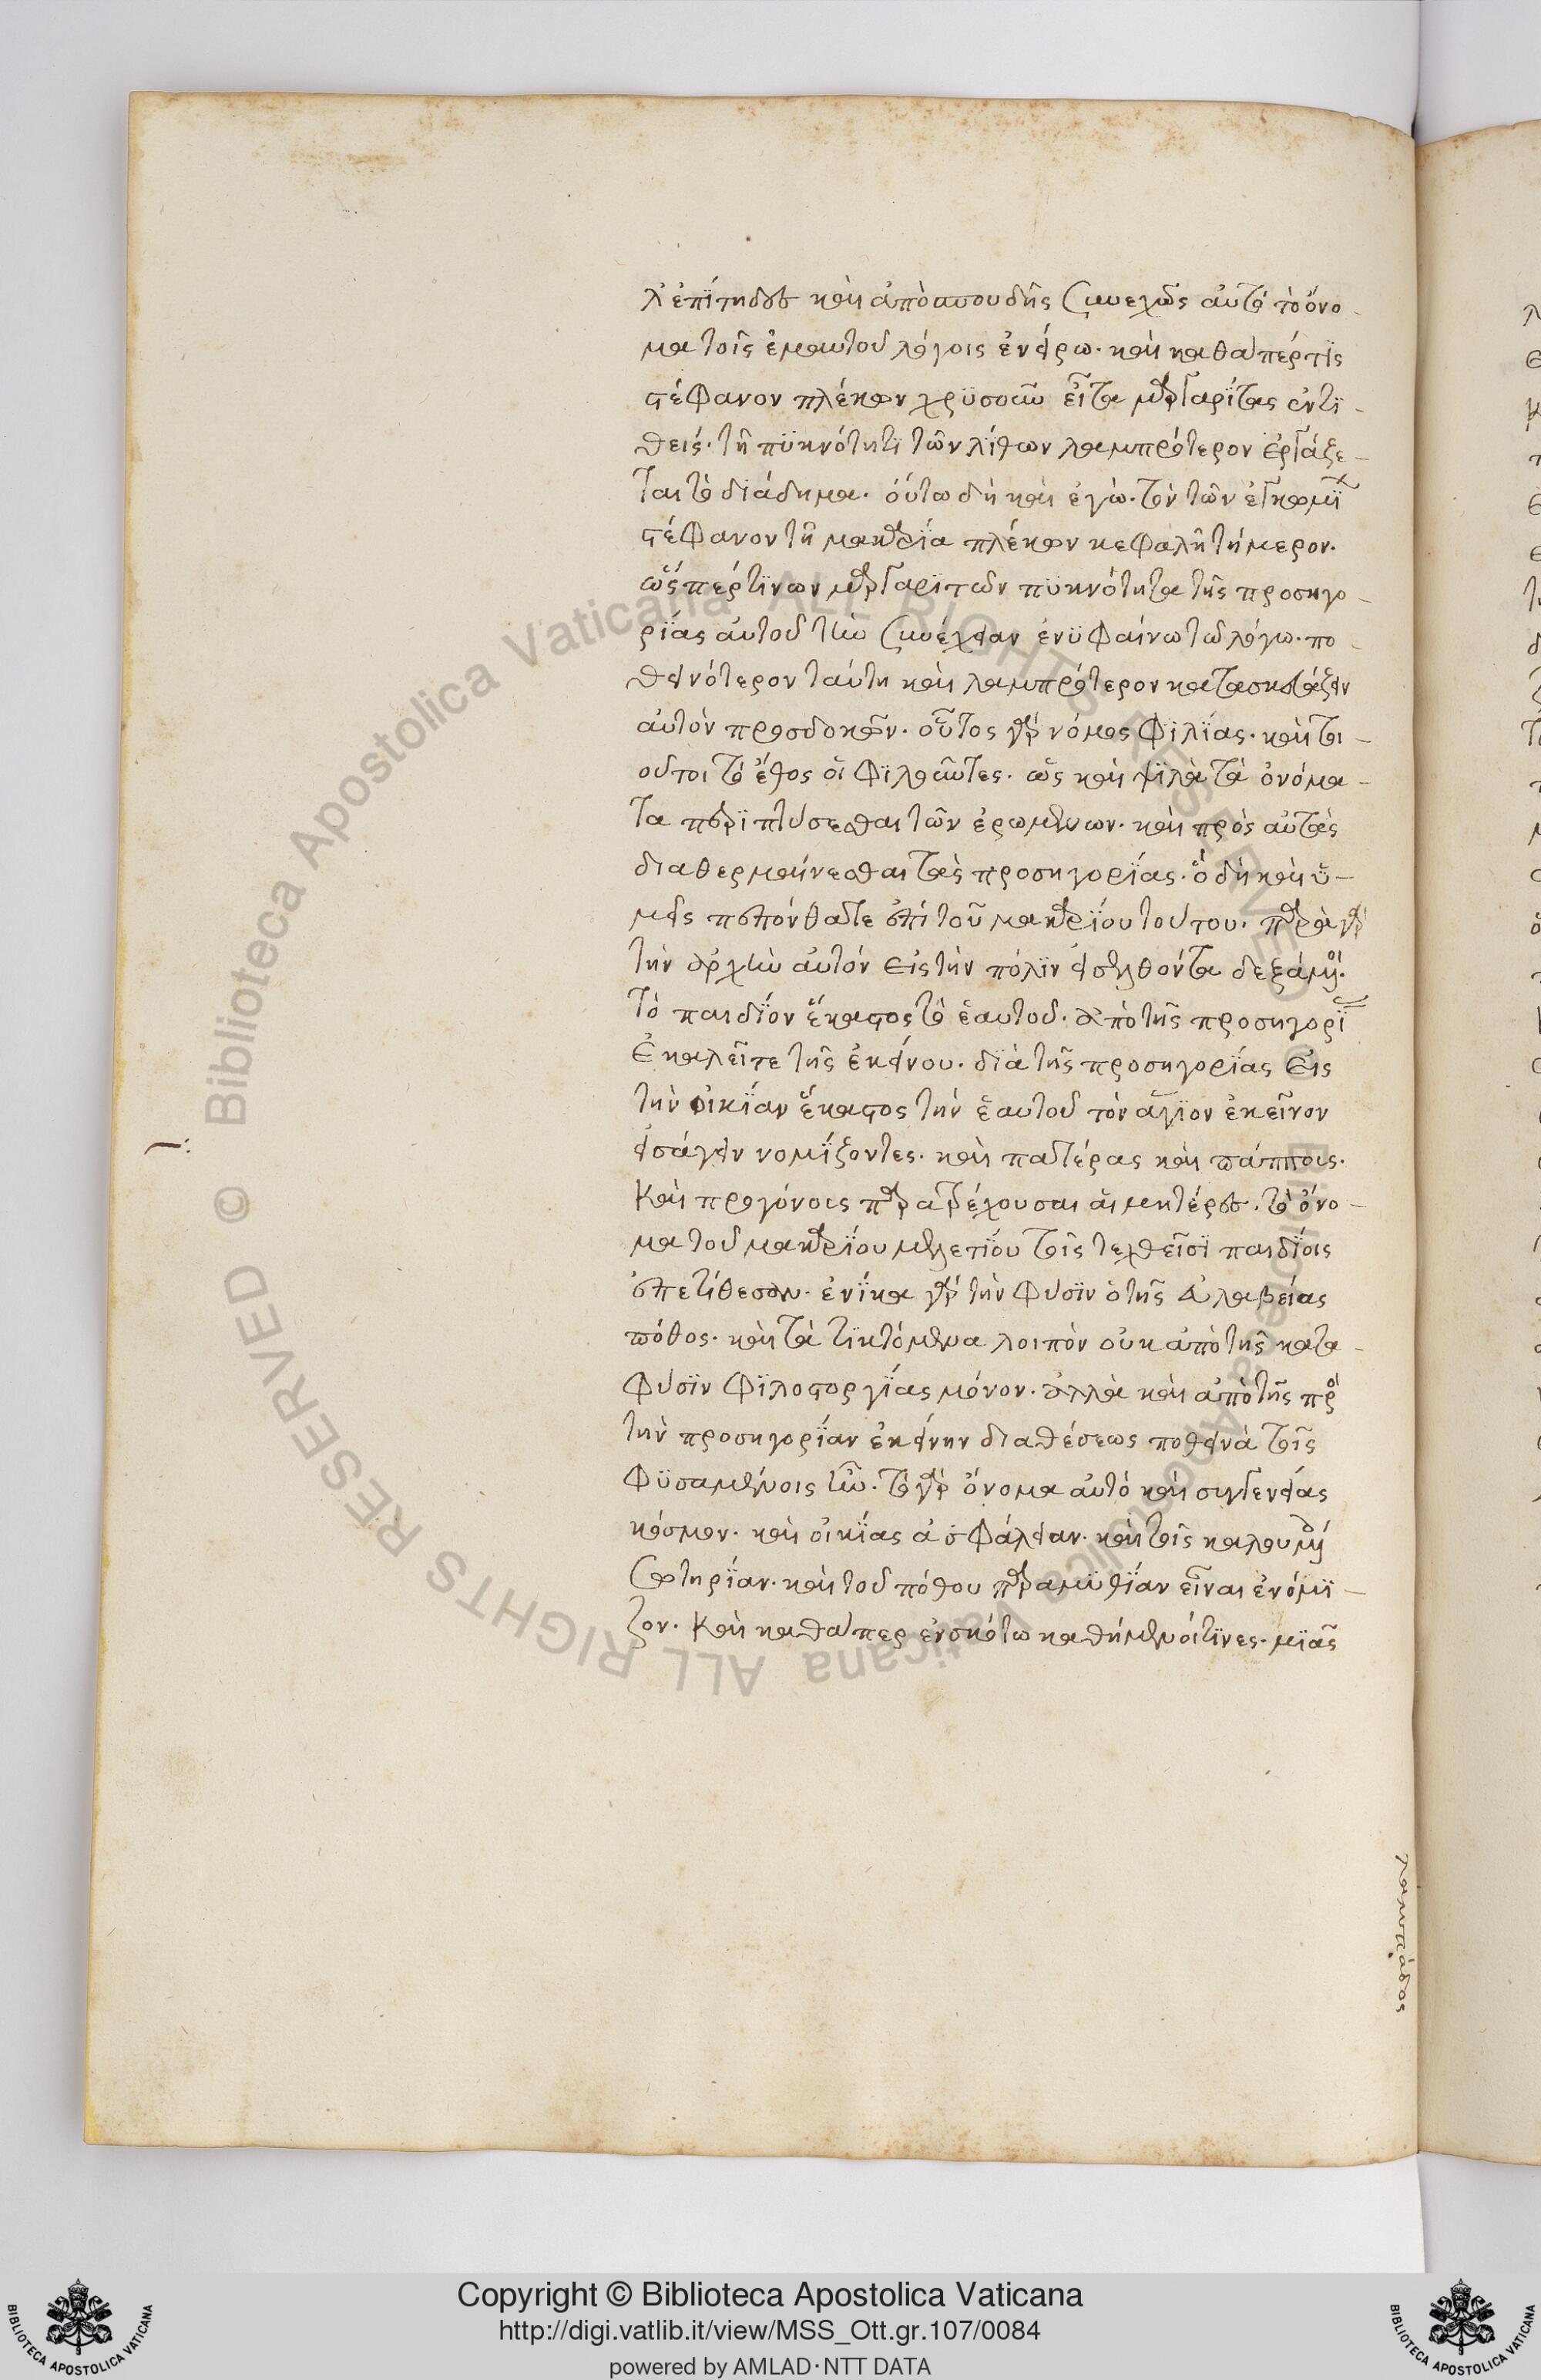 λ' ἐπίτηδες καὶ ἀπὸ σπουδῆς συνεχῶς αὐτὸ τὸ ὄνο-
μα τοῖς ἐμαυτοῦ λόγοις ἐνείρω· καὶ καθάπέρ τϊς
στέφανον πλέκων χρϋσοῦν εἶτα μαργαρΐτας ἐντϊ-
θείς· τῆ πϋκνότητϊ τῶν λΐθων λαμπρότερον ἐργάζε-
ται τὸ διάδημα· οὕτω δὴ καὶ ἐγὼ· τὸν τῶν ἐγκωμΐ
στέφανον τῆ μακαρΐα πλέκων κεφαλῆ τήμερον·
ὥσπέρ τϊνων μαργαρϊτῶν πϋκνότητα τῆς προσηγο-
ρΐας αὐτοῦ τὴν συνέχειαν ἐνϋφαίνω τῶ λόγω· πο-
θεινότερον ταύτη καὶ λαμπρότερον κατασκευάζειν
αὐτὸν προσδοκῶν· οὗτος γὰρ νόμος φϊλΐας· καὶ τοι-
οῦτοι τὸ ἔθος οἱ φϊλοῦντες· ὡς καὶ ψϊλὰ τὰ ὀνόμα-
τα περϊπτύσεσθαι τῶν ἐρωμένων· καὶ πρὸς αὐτὰς
διαθερμαίνεσθαι τὰς προσηγορΐας· ὃ δὴ καὶ ὑ-
μεῖς πεπόνθατε ἐπὶ τοῦ μακαρΐου τούτου· παρὰ γὰρ
τὴν ἀρχὴν αὐτὸν εἰς τὴν πόλϊν εἰσελθόντα δεξάμενοι·
τὸ παιδΐον ἕκαστος τὸ ἑαυτοῦ· ἀπὸ τῆς προσηγορΐ
ἐκαλεῖτε τῆς ἐκείνου· διὰ τῆς προσηγορΐας εἰς
τὴν οἰκΐαν ἕκαστος τὴν ἑαυτοῦ τὸν ἅγϊον ἐκεῖνον
εἰσάγειν νομΐζοντες· καὶ πατέρας καὶ πάππους·
καὶ προγόνους παρατρέχουσαι αἱ μητέρες· τὸ ὄνο-
μα τοῦ μακαρΐου μελετΐου τοῖς τεχθεῖσϊ παιδΐοις
ἐπετίθεσαν· ἐνΐκα γὰρ τὴν φύσϊν ὁ τῆς εὐλαβείας
πόθος· καὶ τὰ τϊκτόμενα λοιπὸν οὐκ ἀπὸ τῆς κατα-
φύσϊν φϊλοστοργΐας μόνον· ἀλλὰ καὶ ἀπὸ τῆς πρὸ
τὴν προσηγορΐαν ἐκείνην διαθέσεως ποθεινὰ τοῖς
φϋσαμένοις ἦν· τὸ γὰρ ὄνομα αὐτὸ καὶ συγγενείας
κόσμον· καὶ οἰκΐας ἀσφάλειαν· καὶ τοῖς καλουμέ
σωτηρΐαν· καὶ τοῦ πόθου παραμϋθΐαν εἶναι ἐνόμϊ-
ζον· καὶ καθάπερ ἐν σκότω καθήμενοί τϊνες· μϊᾶς
λαμπάδος